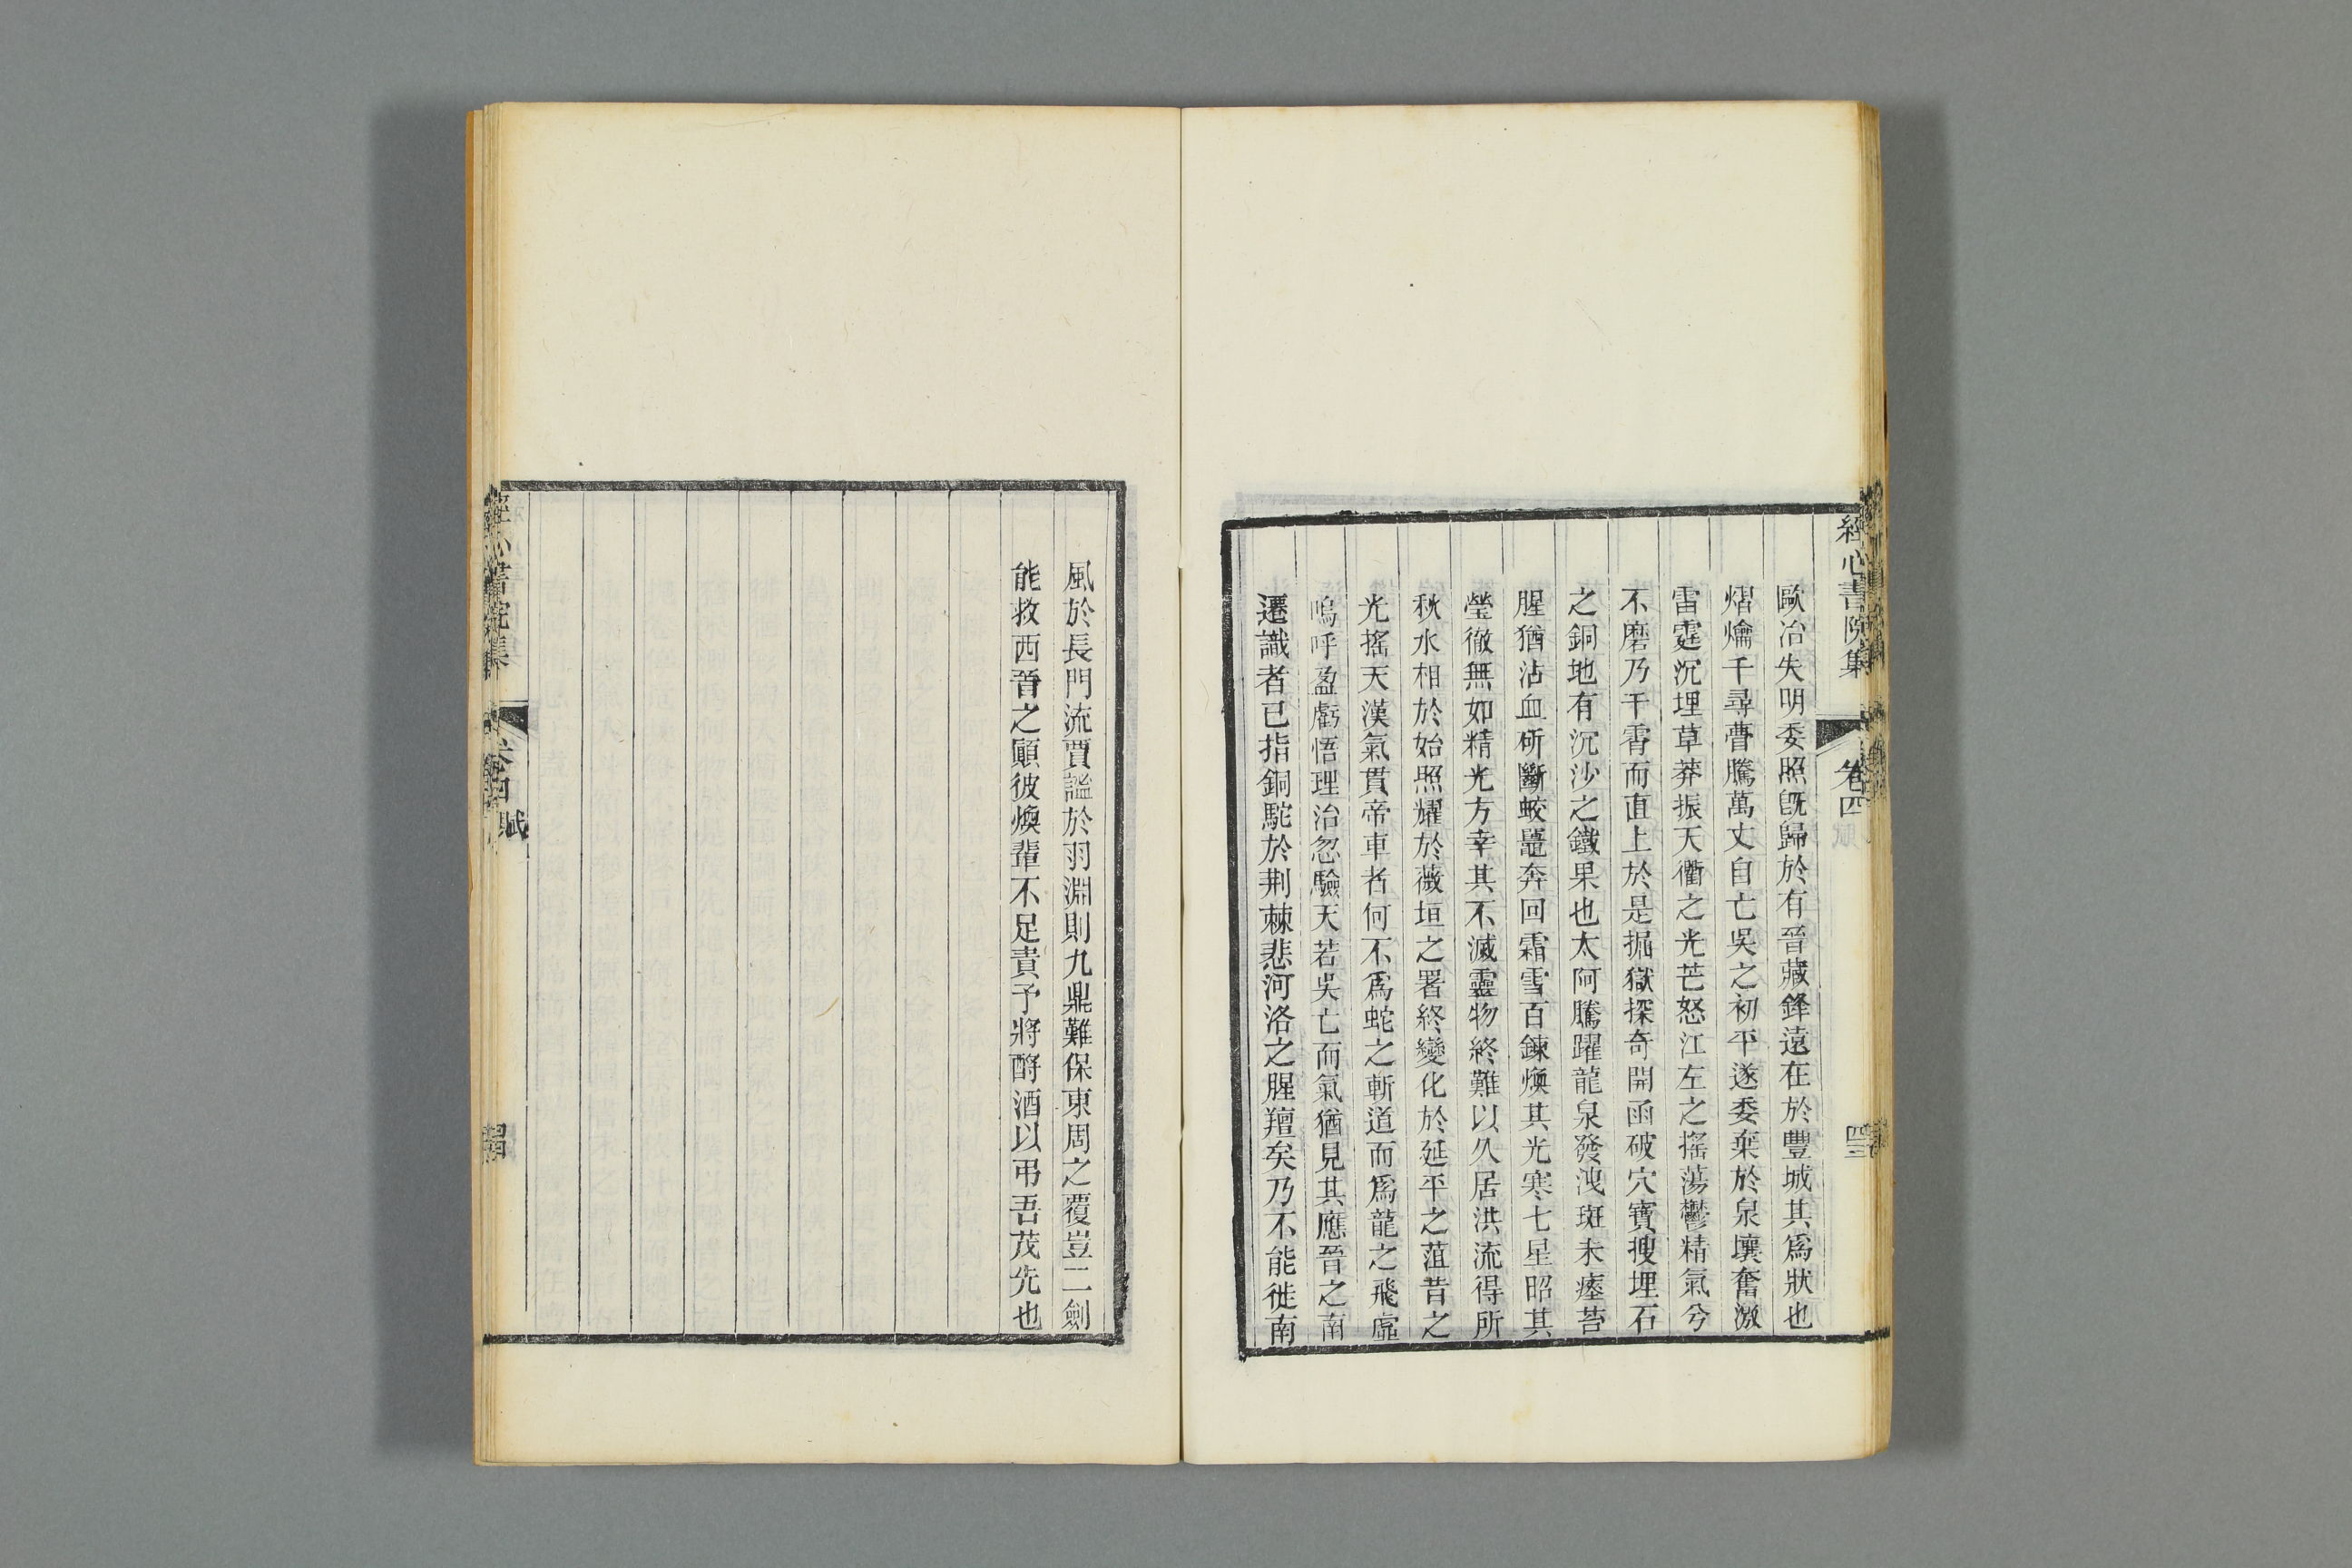 經心書院集
卷四
四三
歐冶失明委照旣歸於有晉藏鋒遠在於豐城其爲狀也
熠爚千尋瞢騰萬丈自亡吳之初平遂委棄於泉壤奮激
雷霆沉埋草莽振天衢之光芒怒江左之搖蕩鬱精氣兮
不磨乃干霄而直上於是掘獄探奇開函破穴寶搜埋石
之銅地有沉沙之鐵果也太阿騰躍龍泉發洩斑未瘞苔
腥猶沾血斫斷蛟鼉奔回霜雪百鍊煥其光寒七星昭其
瑩徹無如精光方幸其不滅靈物終難以久居洪流得所
秋水相於始照耀於薇垣之署終變化於延平之菹昔之
光搖天漢氣貫帝車者何不爲蛇之斬道而爲龍之飛虛
嗚呼盈虧悟理治忽驗天若吳亡而氣猶見其應晉之南
遷識者已指銅駝於荆棘悲河洛之腥羶矣乃不能徙南
風於長門流賈謐於羽淵則九鼎難保東周之覆豈二劍
能救西晉之顚彼煥輩不足責予將酹酒以弔吾茂先也
經心書院集
卷四 賦